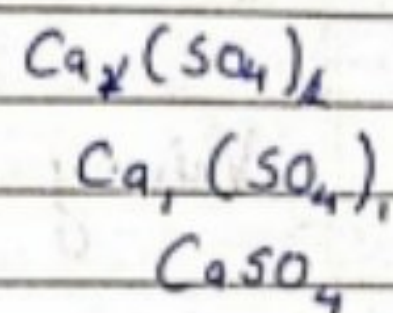 Ca₂(SO₄)₂
Ca₁(SO₄)₁
CaSO₄